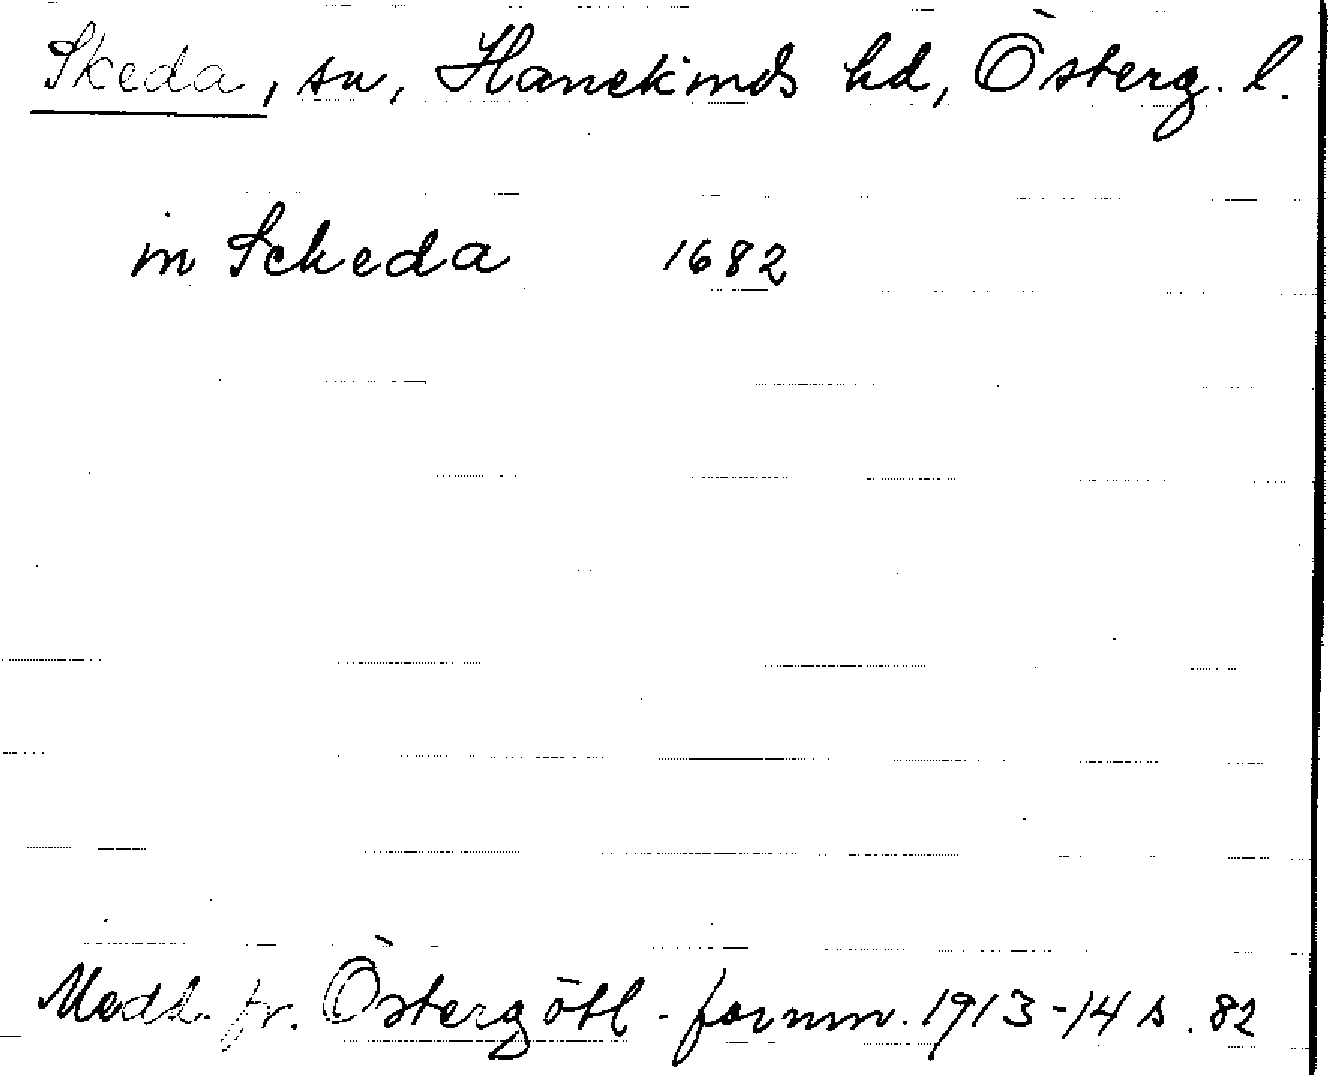 Skeda, sn, Hanekinds hd, Österg. l.
in Sckeda 1682
Medd. fr. Östergötl. fornm. 1913-14 s. 82